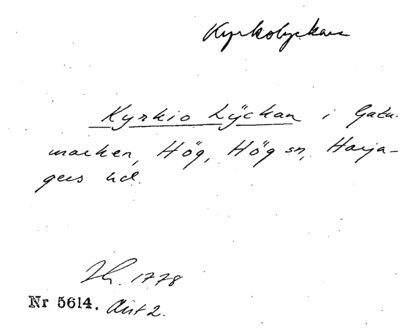 Kyrkolyckan
Kyrkio Lÿckan i Gatu-
marken, Hög, Hög sn, Harja-
gers hd.
1778
Nr 5614. Akt 2.